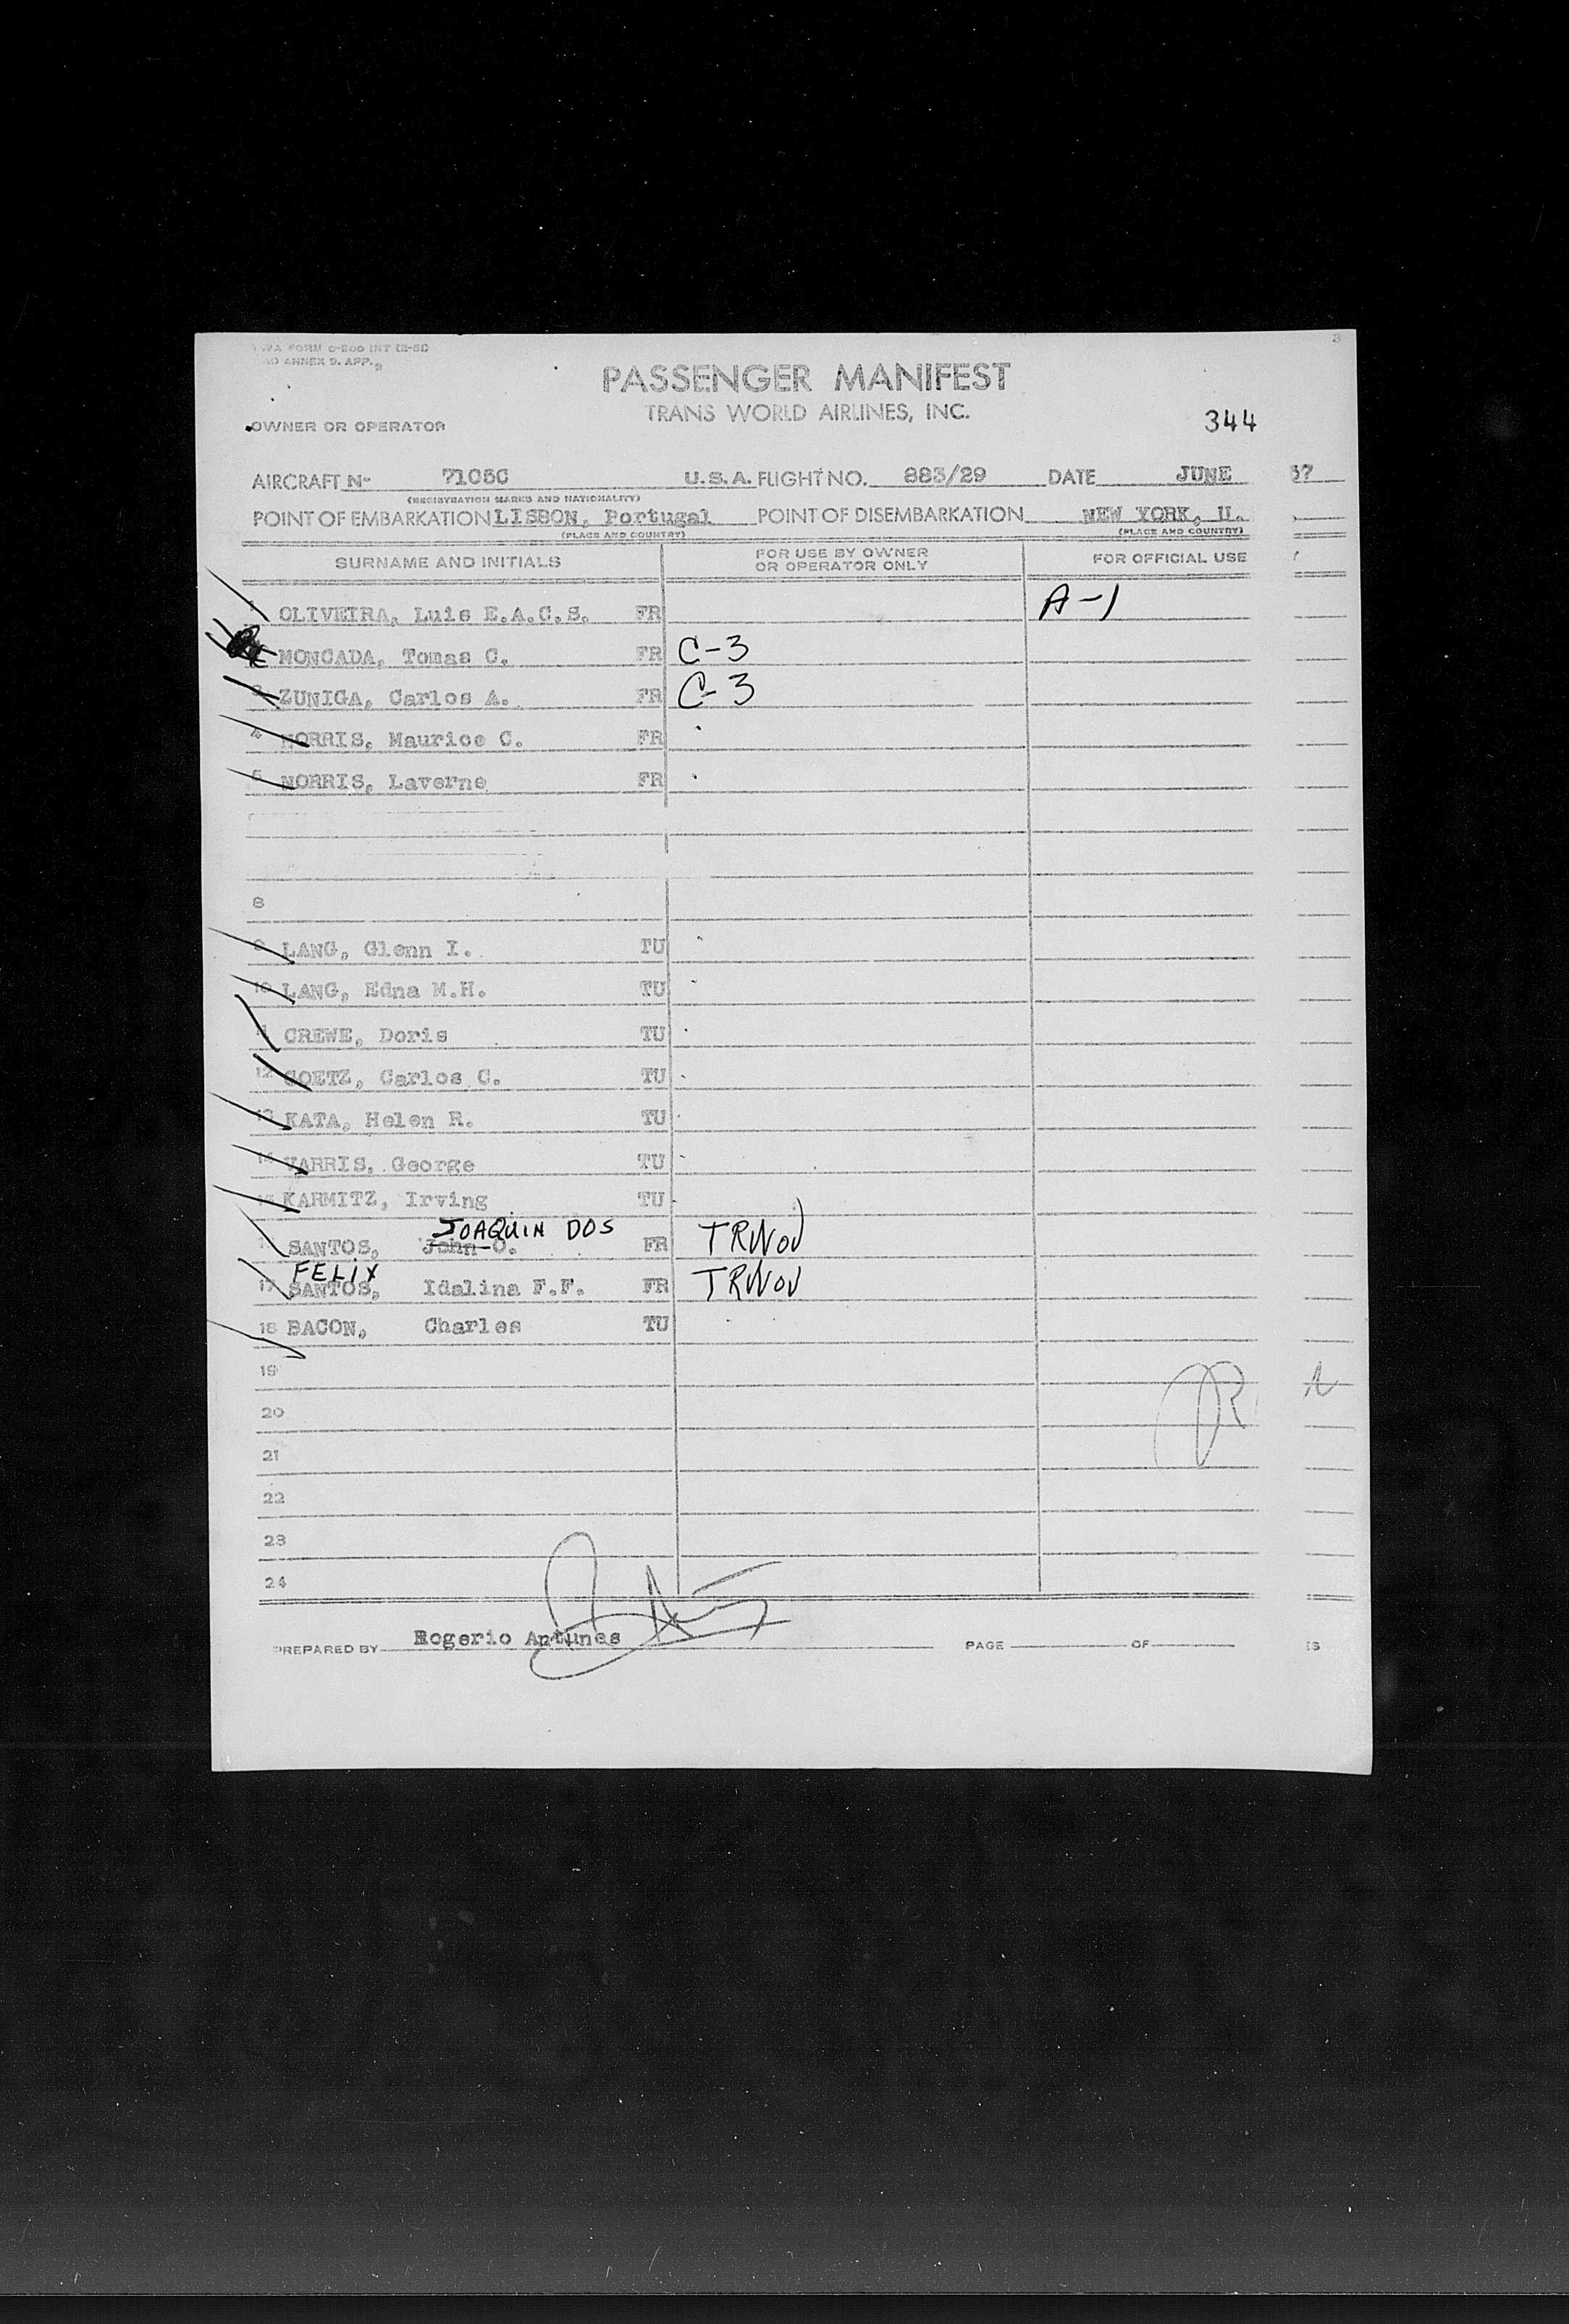 TWA FORM O-200 INT (2-51)
ANNEX 9. APP. 2
3
PASSENGER MANIFEST
TRANS WORLD AIRLINES, INC.
344
OWNER OR OPERATOR
AIRCRAFT N- 7105C U.S.A. FLIGHT NO. 883/29 DATE JUNE 57
(REGISTRATION MARKS AND NATIONALITY)
POINT OF EMBARKATION LISBON, Portugal POINT OF DISEMBARKATION NEW YORK, U.
(PLACE AND COUNTRY) (PLACE AND COUNTRY)
SURNAME AND INITIALS FOR USE BY OWNER OR OPERATOR ONLY FOR OFFICIAL USE
1 OLIVEIRA, Luis E.A.C.S. FR A-1
MONCADA, Tomas C. FR C-3
3 ZUNIGA, Carlos A. FR C-3
4 NORRIS, Maurice C. FR
5 NORRIS, Laverne FR
8
9 LANG, Glenn I. TU
10 LANG, Edna M.H. TU
11 CREWE, Doris TU
12 GOETZ, Carlos C. TU
13 KATA, Helen R. TU
14 VARRIS, George TU
15 KARMITZ, Irving TU
JOAQUIN DOS
SANTOS, John O. FR TRWOV
FELIX
17 SANTOS, Idalina F.F. FR TRWOV
18 BACON, Charles TU
19
20
21
22
23
24
PREPARED BY Rogerio Antunes PAGE OF